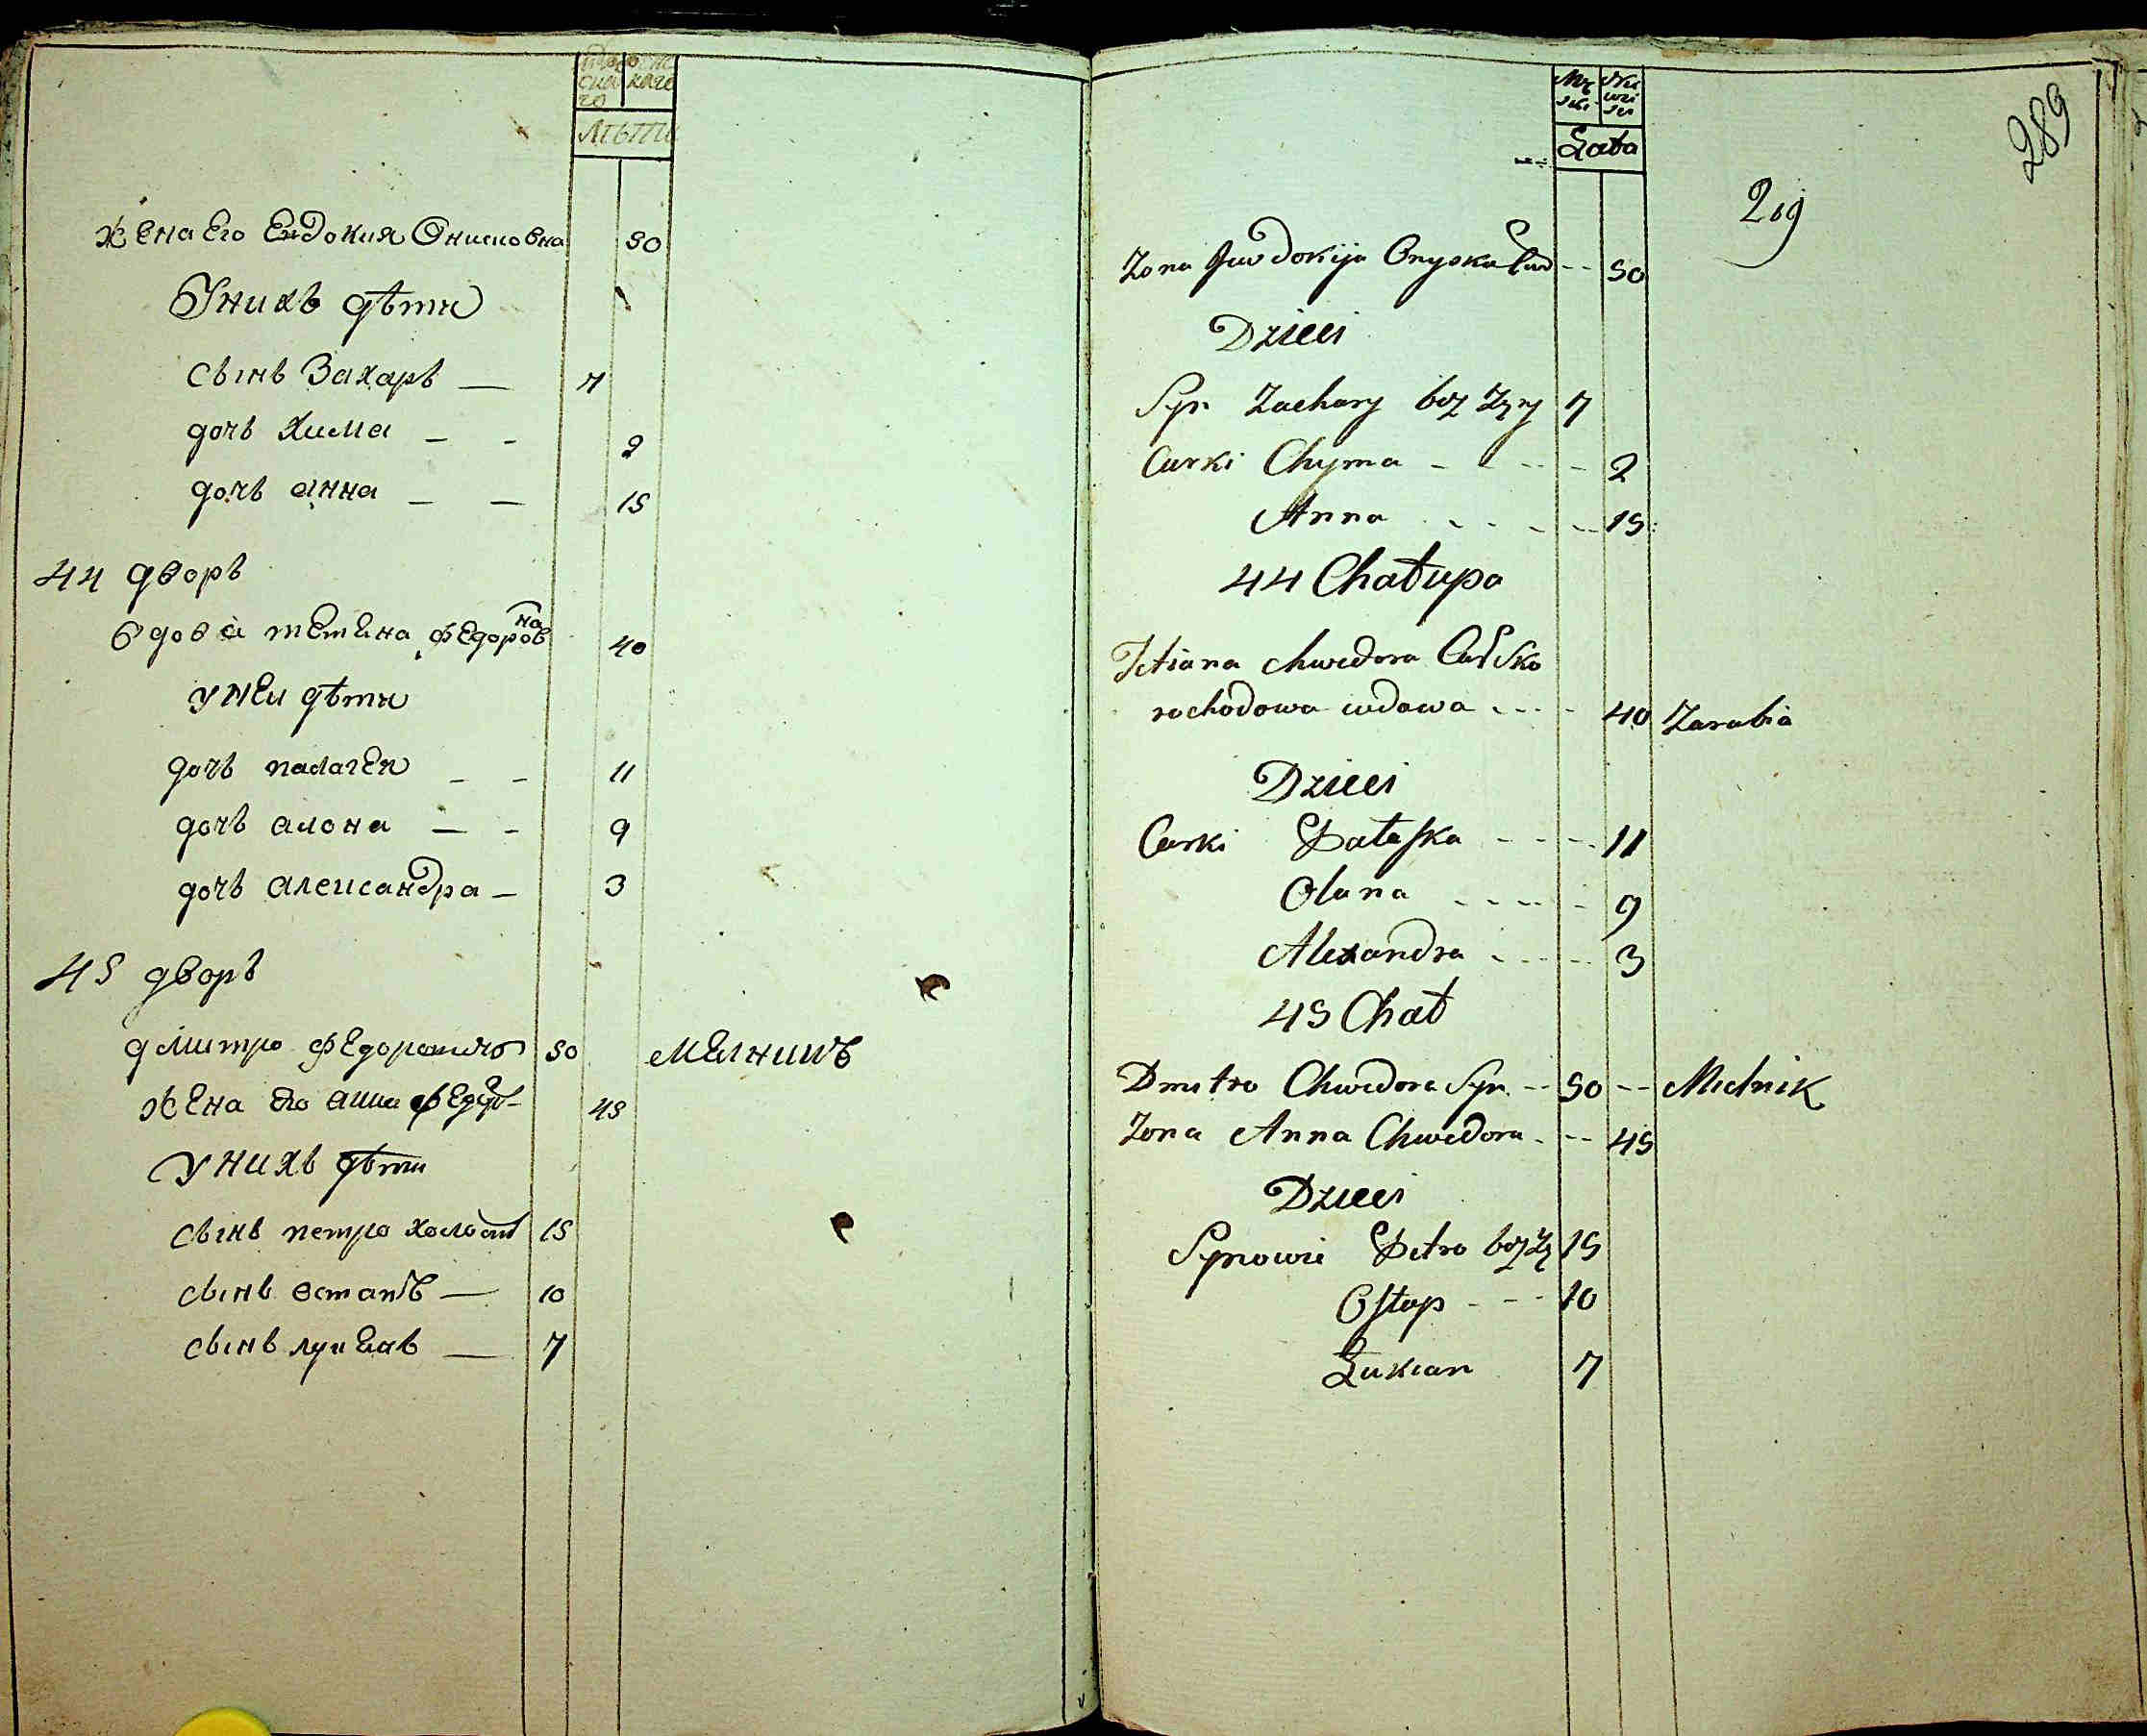 лѣты
жена Его Евдокия Онисковна 50
У нихъ дѣти
сынъ Захаръ — 7
дочь Хима — - 2
дочь анна — — 15
44 дворъ
вдова тетяна федоровна 40
у неи дѣти
дочь палагея - - 11
дочь алона — - 9
дочь александра — 3
45 дворъ
дмитро федоровичъ 50 мелникъ
жена его анна 45
У нихъ дѣти
сынъ петро холостъ 15
сынъ остапъ — 10
сынъ лукіанъ — 7
289
Męski Niewiesci
Lata
289
Zona Jewdokija 50
Dzieci
Syn Zachary bez Zeny 7
Curki Chyma - - - - 2
Anna - - - - 15
44 Chałupa
Tetiana Chwedora
rochodowa wdowa - - - 40 Zarabia
Dzieci
Curki Pałaſka - - - 11
Olana - - - - 9
Alexandra - - - - 3
45 Chał
Dmitro Chwedora Syn -- 50 -- Mielnik
Zona Anna Chwedora - -- 45
Dzieci
Synowie Petro bez Ze 15
Oſtap - - - 10
Łukian 7